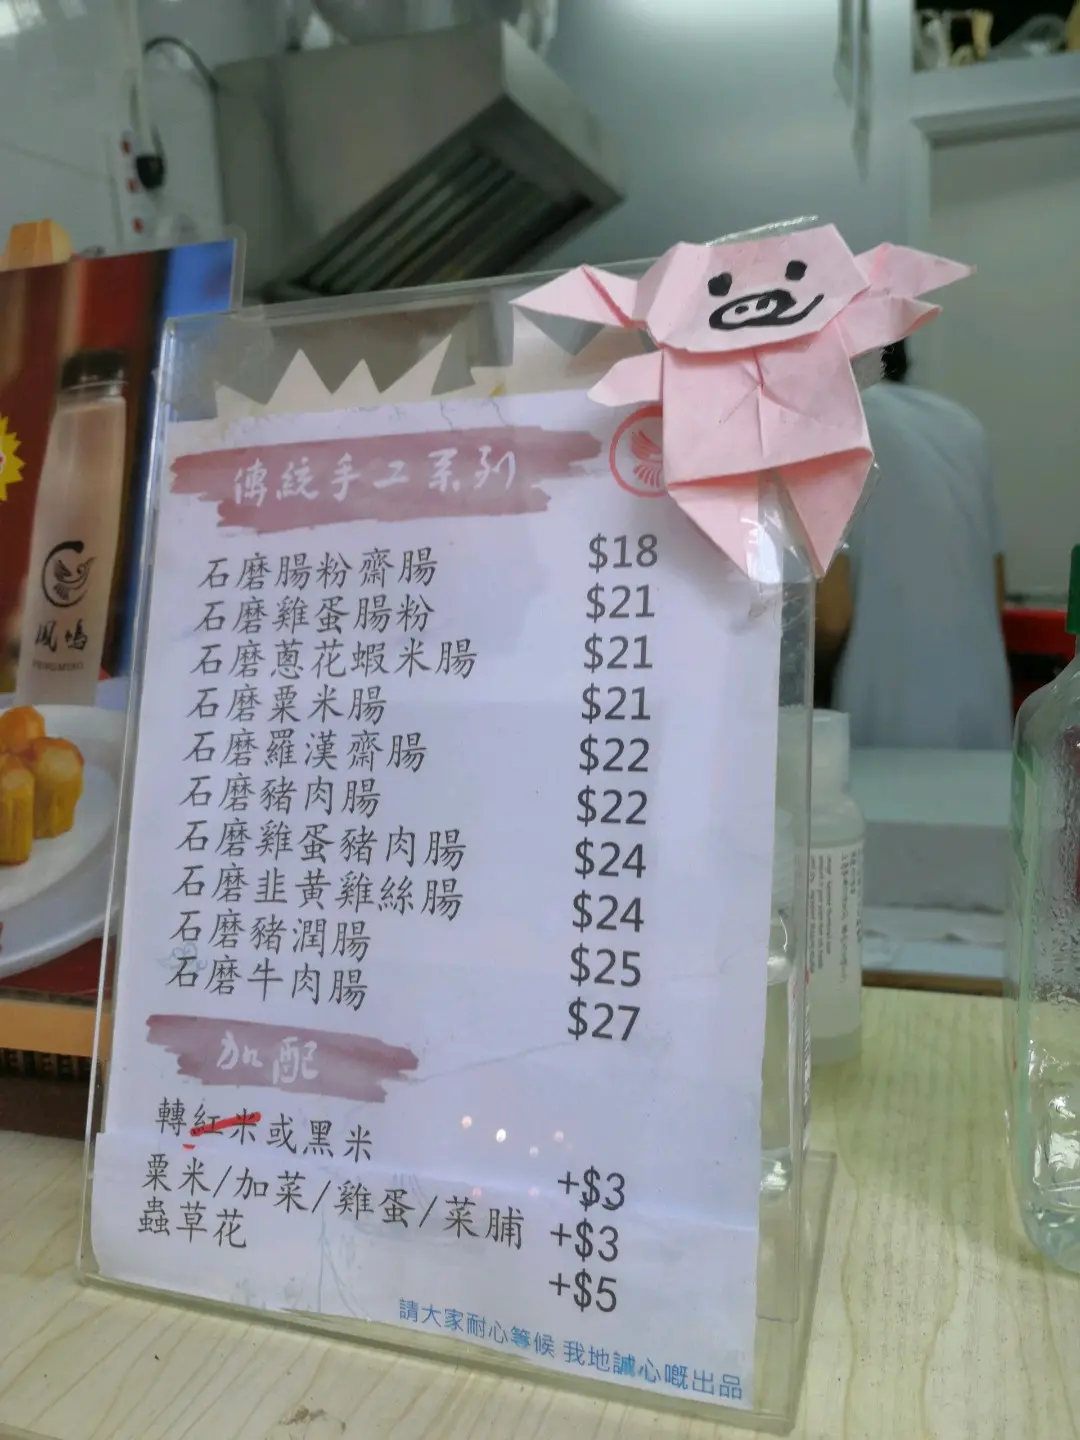 傳統手工系列
石磨腸粉齋腸 $18
石磨雞蛋腸粉 $21
石磨蔥花蝦米腸 $21
石磨粟米腸 $21
石磨羅漢齋腸 $22
石磨豬肉腸 $22
石磨雞蛋豬肉腸 $24
石磨韭黃雞絲腸 $24
石磨豬潤腸 $25
石磨牛肉腸 $27
加配
轉紅米或黑米 +$3
粟米/加菜/雞蛋/菜脯 +$3
蟲草花 +$5
請大家耐心等候 我地誠心嘅出品
鳳鳴